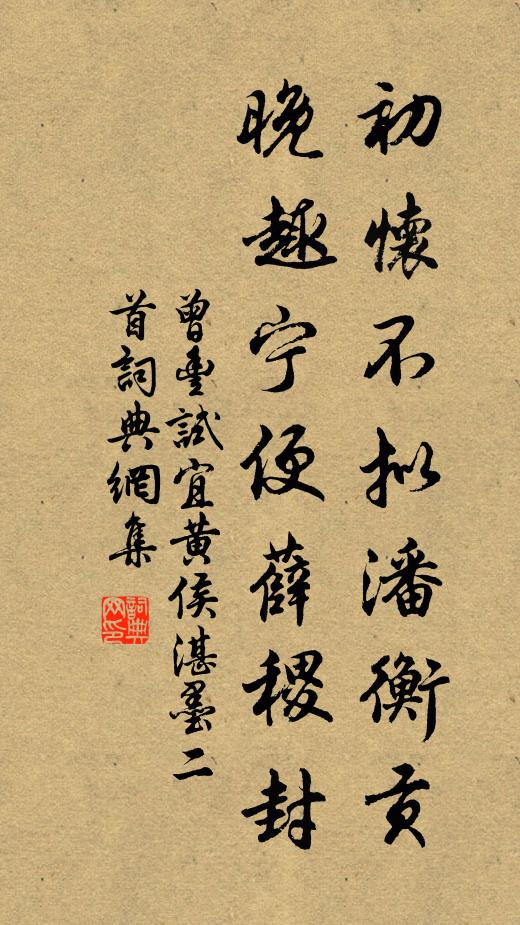 初懷不拟潘衡貢
晚趣宁便薛稷封
曾豊試宜黄侯湛墨二
首詞典網集
詞典网印